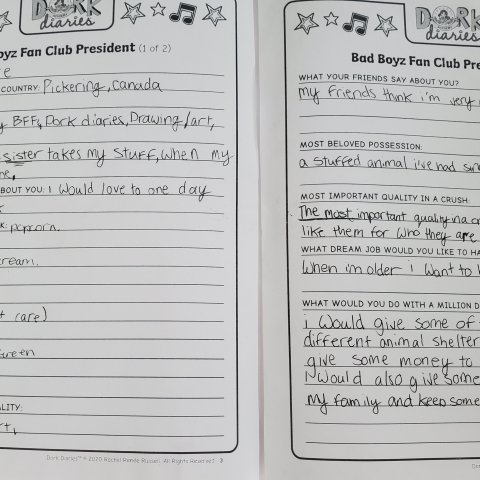 DORK
diaries
oyz Fan Club President (1 of 2)
re
COUNTRY: Pickering, Canada
y BFF, Dork diaries, Drawing/art,
sister takes my stuff, when my
me,
BOUT YOU: I would love to one day
K: popcorn.
cream.
t care)
Green
ALITY:
rt,
Dork Diaries™ © 2020 Rachel Renée Russell. All Rights Reserved. 3
DORK
diaries
Bad Boyz Fan Club Pre
WHAT YOUR FRIENDS SAY ABOUT YOU?
my friends think i'm very
MOST BELOVED POSSESSION:
a stuffed animal i've had sin
MOST IMPORTANT QUALITY IN A CRUSH:
The most important quality in a cr
like them for who they are
WHAT DREAM JOB WOULD YOU LIKE TO HA
When i'm older i want to b
WHAT WOULD YOU DO WITH A MILLION D
i would give some of
different animal shelter
give some money to
I Would also give some
my family and keep some
Dork